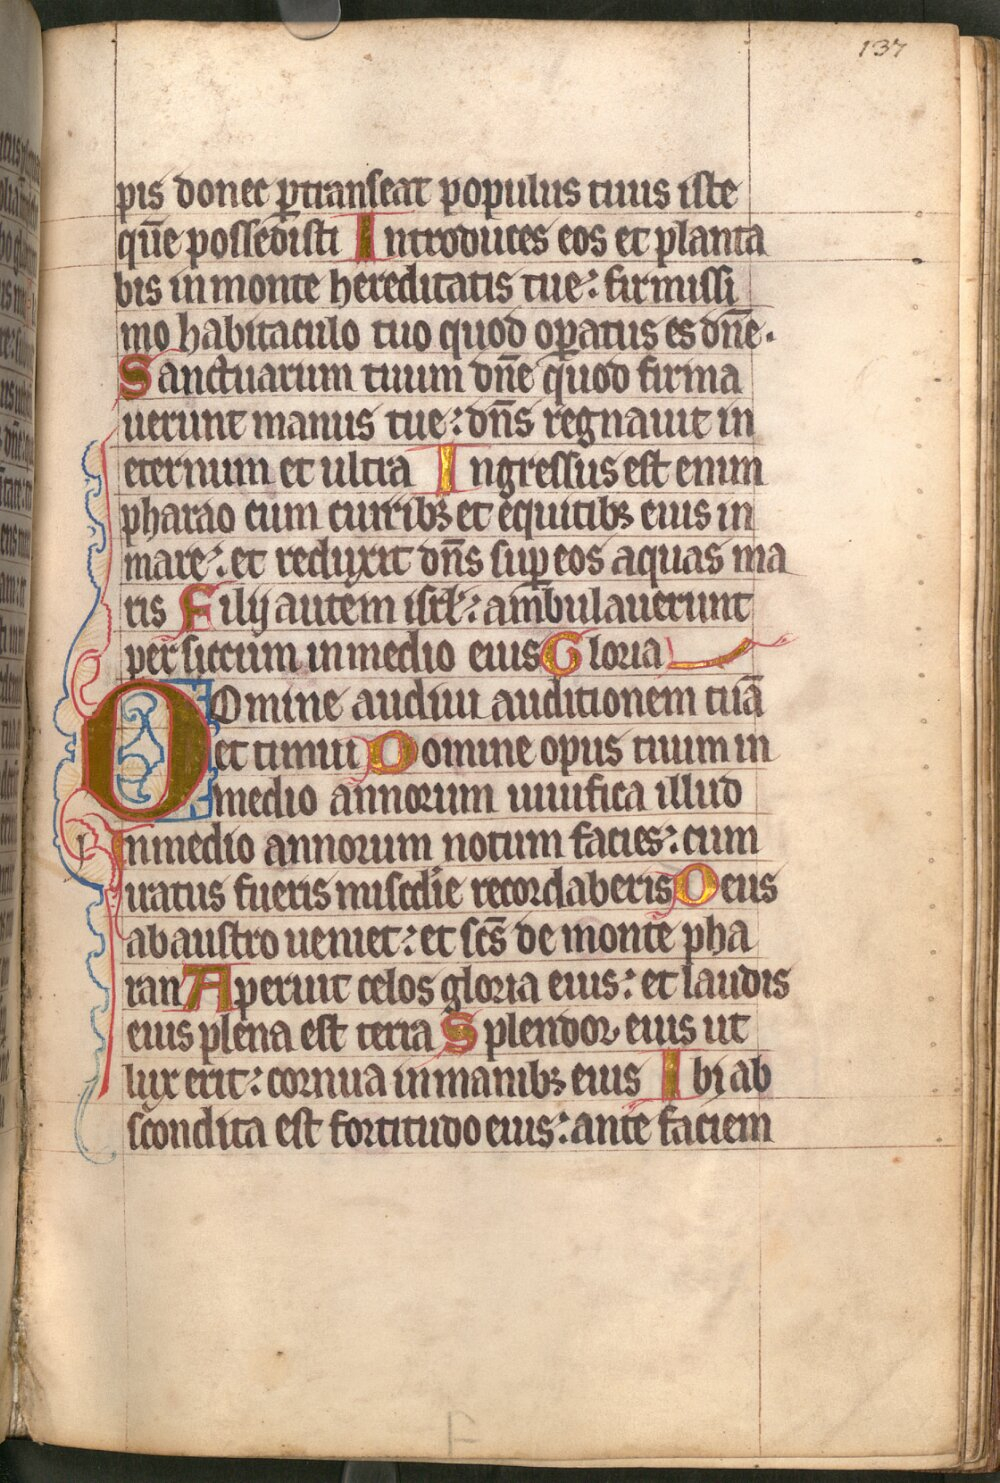 137
pis donec ꝑtranseat populus tuus iste
quē possedisti Introduces eos et planta
bis in monte hereditatis tue: firmissi
mo habitaculo tuo quod oꝑatus es dn̄e.
Sanctuarium tuum dn̄e quod firma
uerunt manus tue: dn̄s regnauit in
eternum et ultra Ingressus est enim
pharao cum curribꝫ et equitibꝫ eius in
mare: et reduxit dn̄s suꝑ eos aquas ma
ris Filij autem isrl̄: ambulauerunt
per siccum in medio eius Gloria
Domine audiui auditionem tuā
et timui Domine opus tuum in
medio annorum uiuifica illud
In medio annorum notum facies: cum
iratus fueris mis̄cdie recordaberis Deus
ab austro ueniet: et sc̄s de monte pha
ran Aperuit celos gloria eius: et laudis
eius plena est terra Splendor eius ut
lux erit: cornua in manibꝫ eius Ibi ab
scondita est fortitudo eius: ante faciem